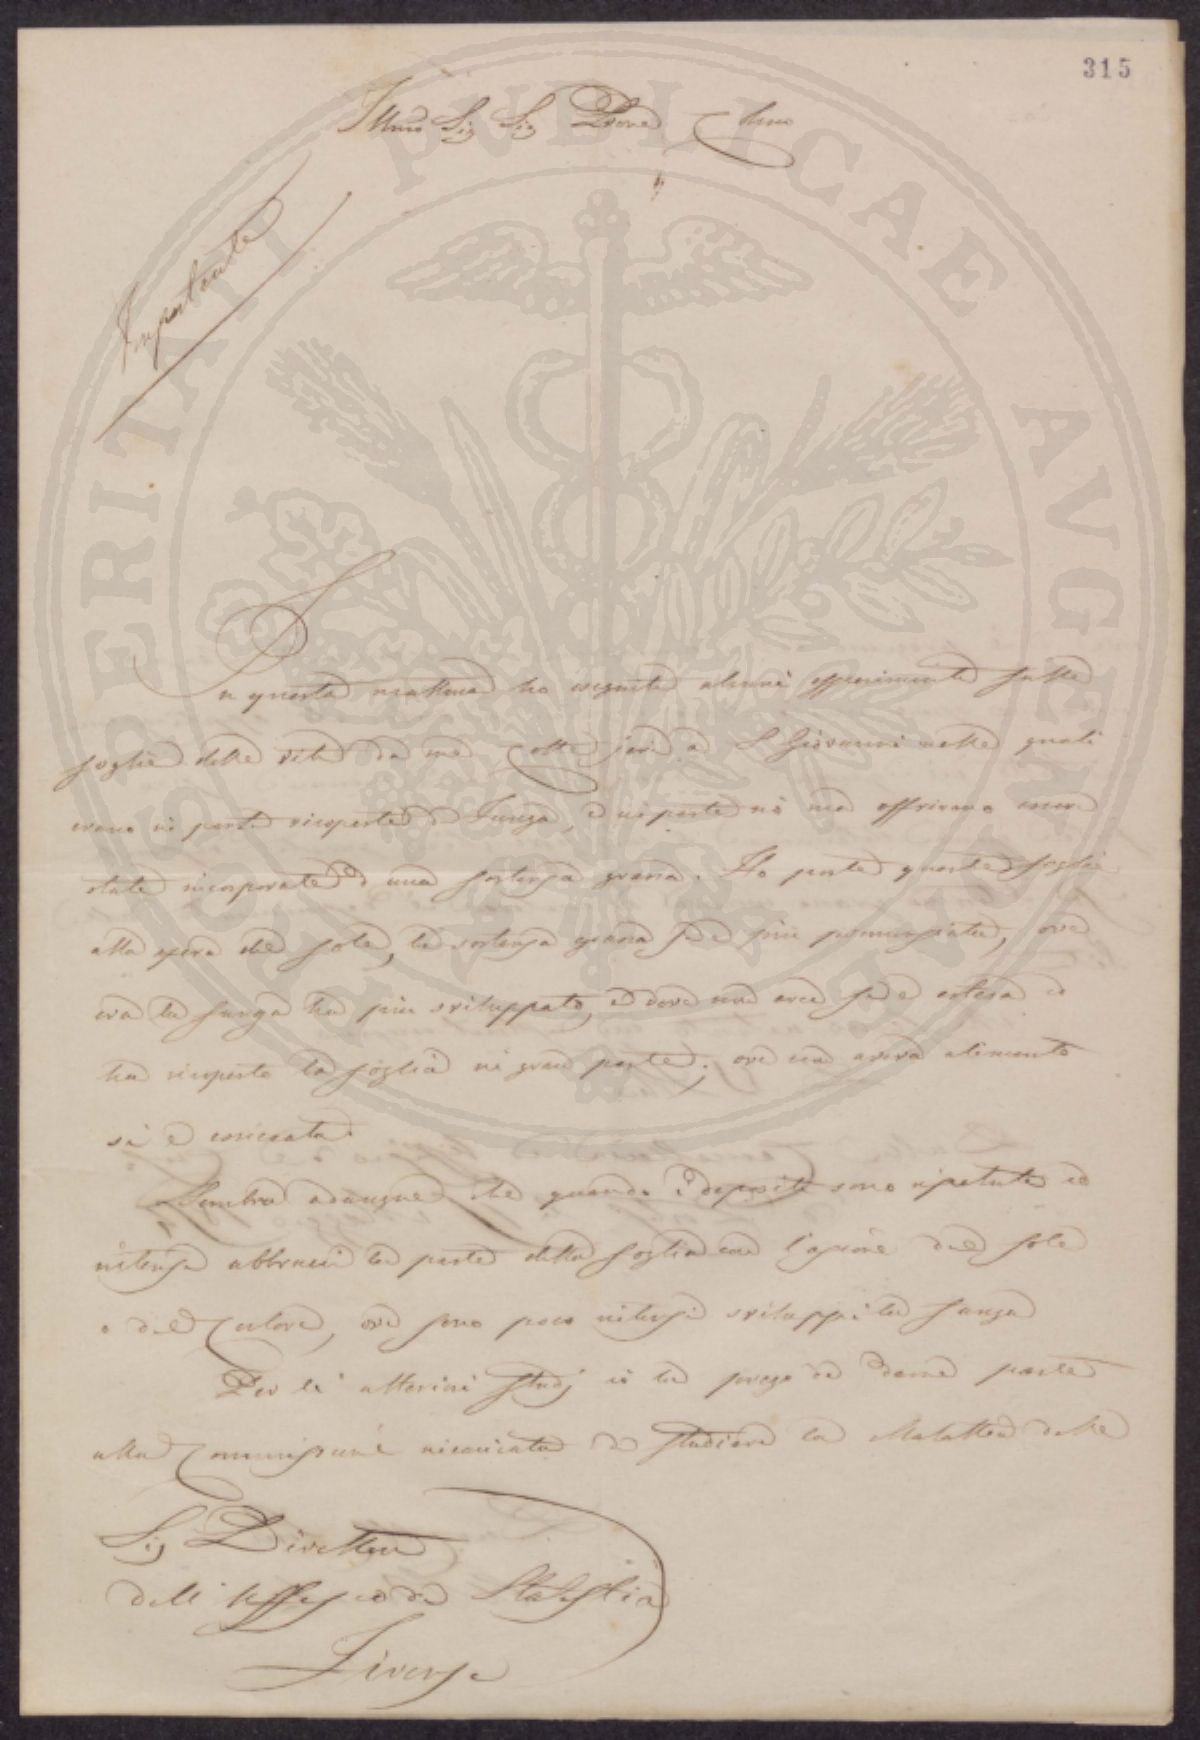 315
Illmo Sig Sig Prone Clmo
Importante
In questa mattina ho eseguito alcuni esperimenti sulle
foglie delle viti da me colte jeri a S Giovanni nelle quali
erano in parte ricoperte di funga, e in parte offrivano essere
state incorporate di una sostanza grassa. Ho poste queste foglie
alla spera del sole, la sostanza grassa si è più pronunziata, ove
era la funga ha più sviluppato, ed dove non era si è estesa e
ha ricoperto la foglia in gran parte; ove aveva alimento
si è
Sembra adunque che quando i depositi sono ripetuti ed
intensi abbruci la parte della foglia con l'azione del sole
o del calore, ove sono poco intensi sviluppi la funga
Per li ulteriori studj io la prego di darne parte
alla Commissione incaricata di studiare la Malattia delle
Sig Direttore
dell' Uffizio di Statistica
Firenze
PERITATI PUBLICAE AUGENDAE